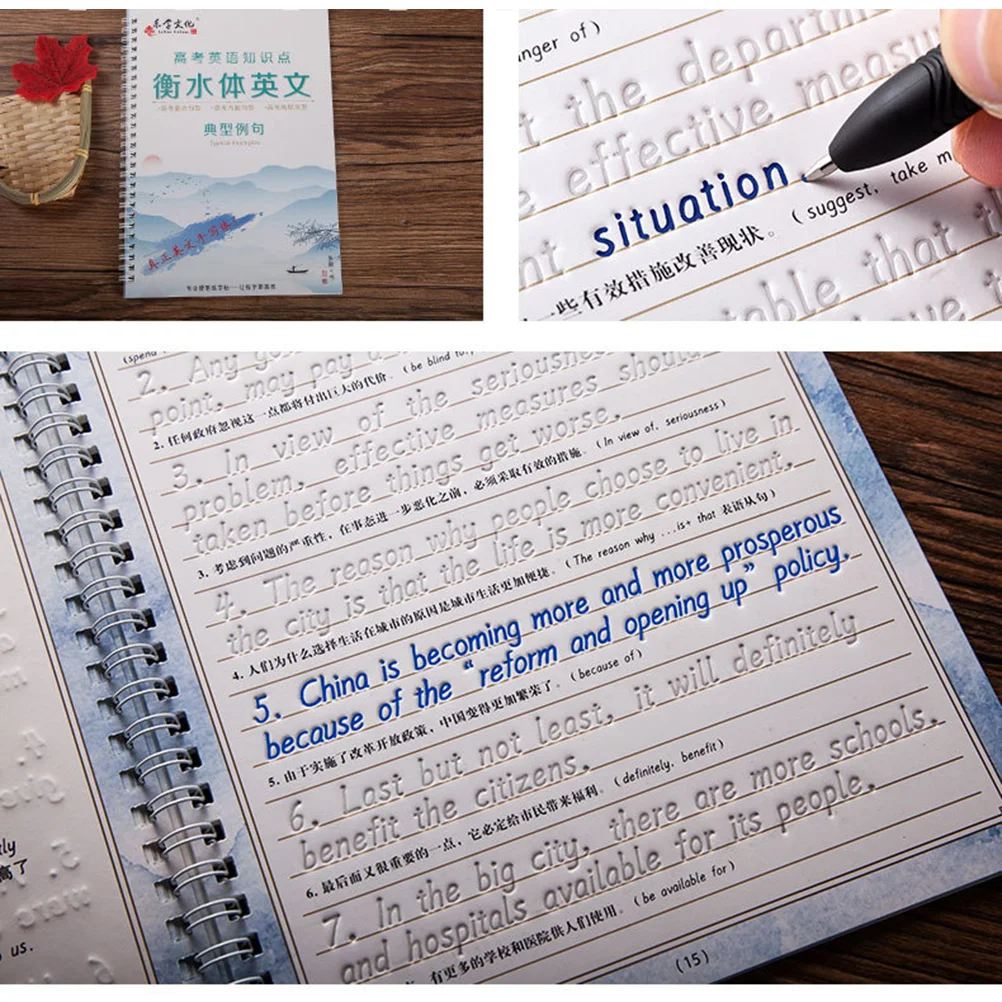 乐字文化
高考英语知识点
衡水体英文
典型例句
真正英文手写体
anger of)
t the departm
e effective measu
situation.
(suggest, take m
一些有效措施改善现状。
nt
table that t
(spend
2. Any go
point, may pay a
2. 任何政府忽视这一点都将付出巨大的代价。(be blind to,
3. In view of the seriousness
problem, effective measures should
taken before things get worse.
3. 考虑到问题的严重性，在事态进一步恶化之前，必须采取有效的措施。(In view of, seriousness)
4. The reason why people choose to live in
the city is that the life is more convenient.
4. 人们为什么选择生活在城市的原因是城市生活更加便捷。(The reason why ...is+ that 表语从句)
5. China is becoming more and more prosperous
because of the “reform and opening up” policy.
5. 由于实施了改革开放政策，中国变得更加繁荣了。(because of)
6. Last but not least, it will definitely
benefit the citizens.
6. 最后而又很重要的一点，它必定给市民带来福利。(definitely, benefit)
7. In the big city, there are more schools.
and hospitals available for its people.
有更多的学校和医院供人们使用。(be available for)
(15)
us.